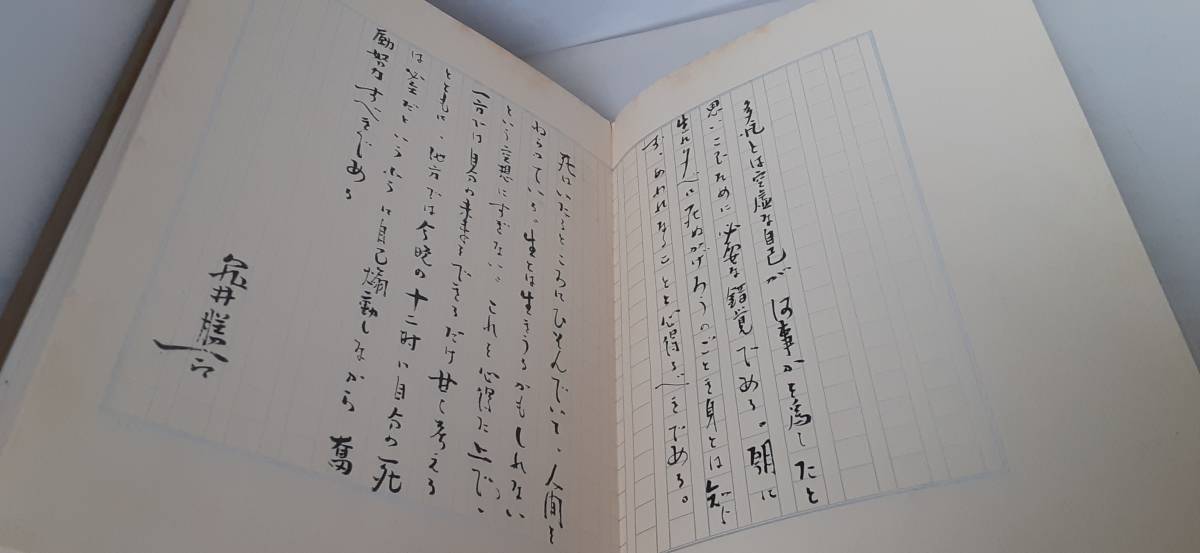 多忙とは空虚な自己が何事かを為したと
思いこむために必要な錯覚である。朝に
生れ夕べに死ぬかげろうのごとき身とは知ら
ず、あわれなることと心得るべきである。
死はいたるところにひそんでいて、人間を
ねらっている。生とは生きうるかもしれない
という空想にすぎない。これを心得た上で、
一方では自分の未来をできるだけ甘く考える
とともに、他方では今晩の十二時に自分の死
は必至だというふうに自己煽動しながら 奮
励努力すべきである
亀井勝一郎